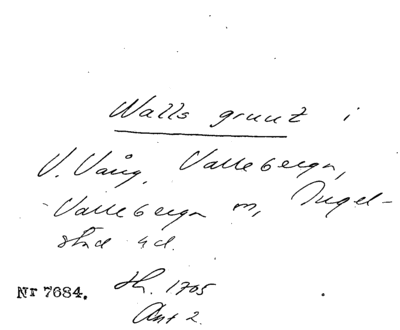 Walls grunt i
V. Vång, Valleberga,
Valleberga sn, Ingel-
stad hd.
Nr 7684. Sk. 1705
Akt 2.